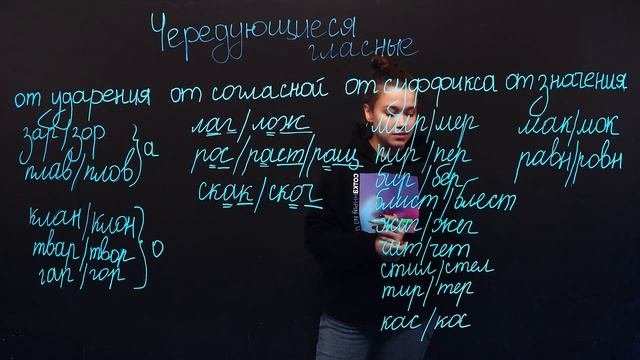 Чередующиеся
гласные
от ударения
зар/зор
плав/плов
а
клан/клон
твар/твор
гар/гор
о
от согласной
лаг/лож
рос/раст/ращ
скак/скоч
от суффикса
мир/мер
пир/пер
бир/бер
блист/блест
жиг/жег
чит/чет
стил/стел
тир/тер
кас/кос
от значения
мак/мок
равн/ровн
сотка